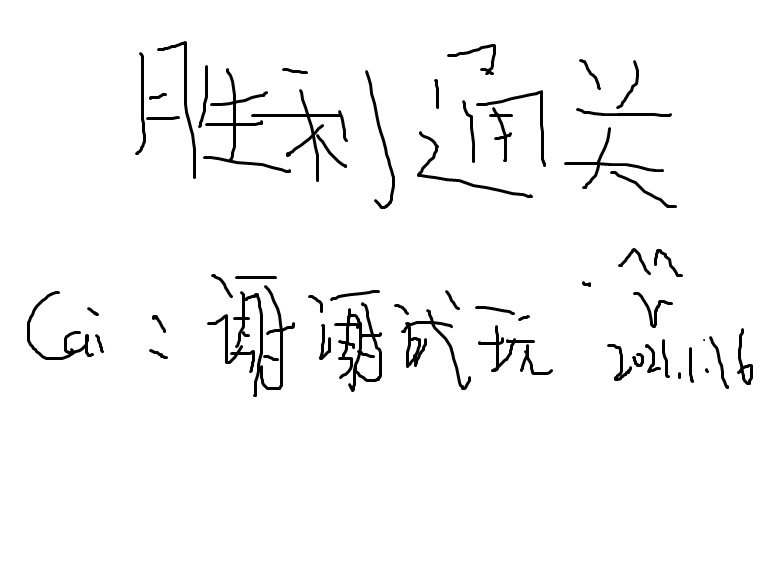 胜利通关
Cai：谢谢试玩
2021.1.16